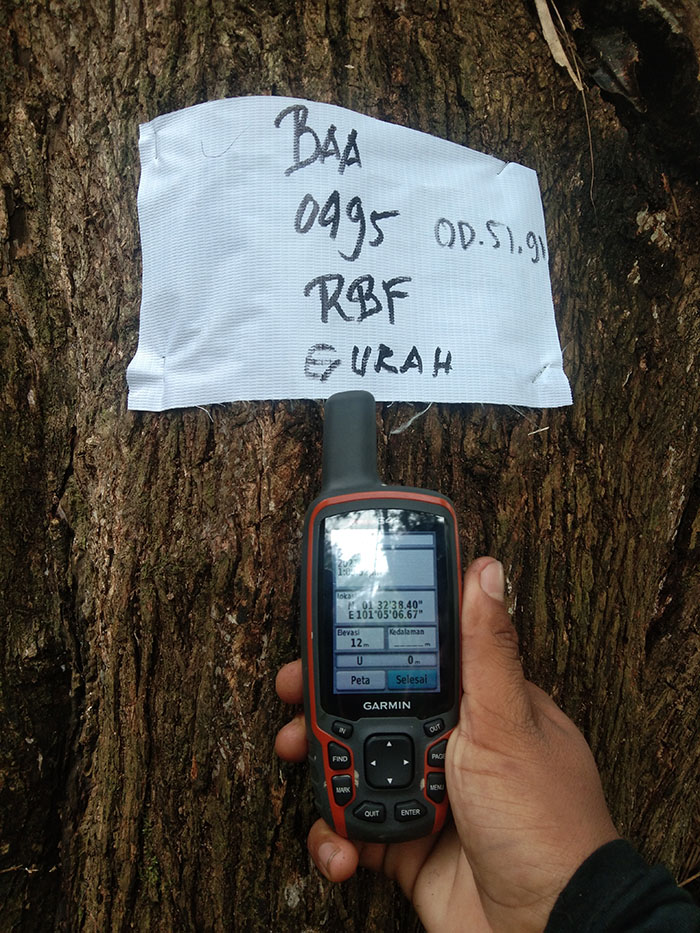 BAA
0495 OD.51.91
RBF
GURAH
lokasi
N 01°32'38.40"
E101°05'06.67"
Elevasi Kedalaman
12 m
U 0 m
Peta Selesai
GARMIN
IN OUT
FIND PAGE
MARK MENU
QUIT ENTER